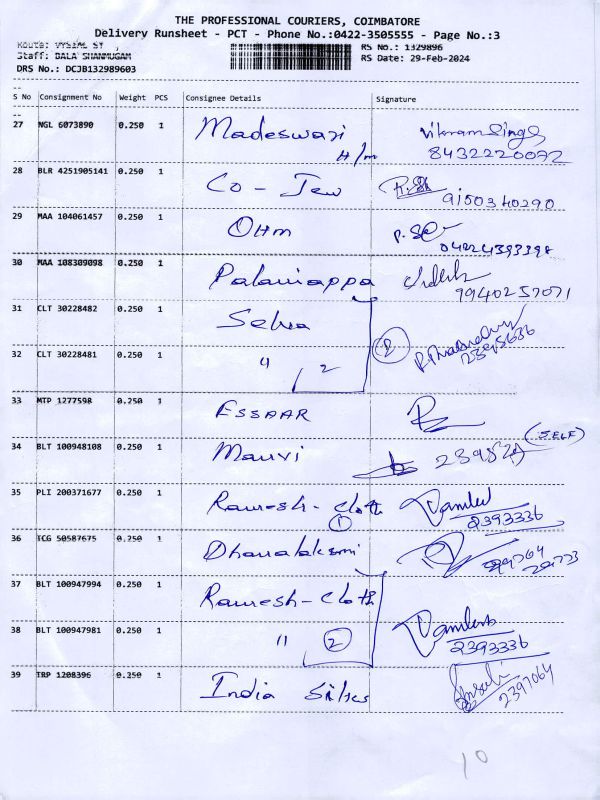 THE PROFESSIONAL COURIERS, COIMBATORE
Delivery Runsheet - PCT - Phone No.:0422-3505555 - Page No.:3
Route: VYSIAL ST ,
Staff: BALA SHANMUGAM
DRS No.: DCJB132989603
RS No.: 1329896
RS Date: 29-Feb-2024
S No Consignment No Weight PCS Consignee Details Signature
27 NGL 6073890 0.250 1 Madeswari H/m Vikram Singh 8432220072
28 BLR 4251905141 0.250 1 Co - Jew 9150340290
29 MAA 104061457 0.250 1 OHM 04224393398
30 MAA 108309098 0.250 1 Palaniappa 9940257071
31 CLT 30228482 0.250 1 Selva
32 CLT 30228481 0.250 1 " 2 2 2395636
33 MTP 1277598 0.250 1 ESSAAR
34 BLT 100948108 0.250 1 Manvi (SELF)
35 PLI 200371677 0.250 1 Ramesh - Cloth 1 2393336
36 TCG 50587675 0.250 1 Dhanalaksmi
37 BLT 100947994 0.250 1 Ramesh - Cloth
38 BLT 100947981 0.250 1 " 2 2393336
39 TRP 1208396 0.250 1 India Silks 2397064
10